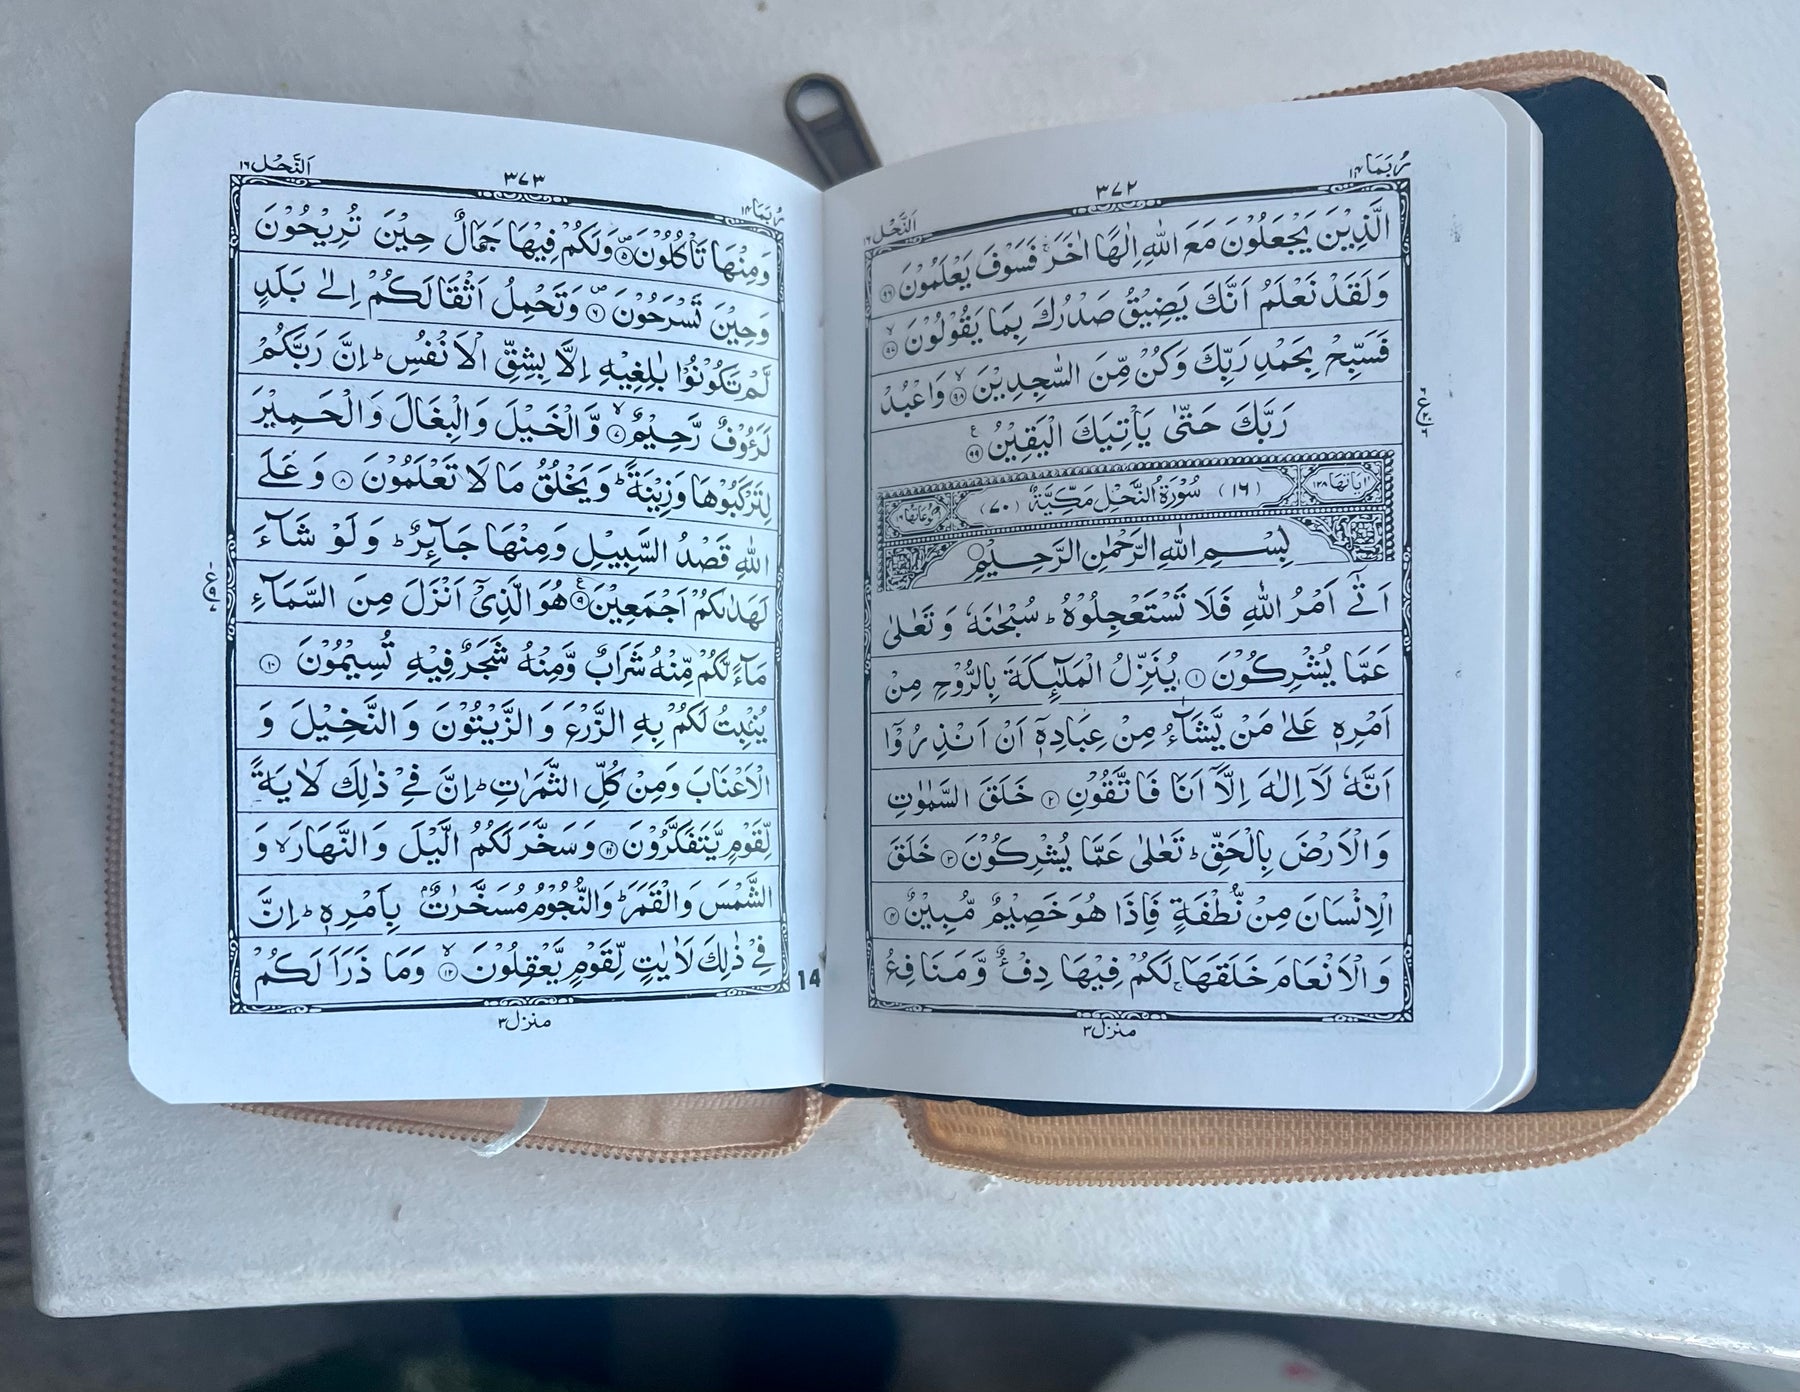 رُبَمَا ١٤
٣٧٢
اَلنَّحْل ١٦
الَّذِيْنَ يَجْعَلُوْنَ مَعَ اللّٰهِ اِلٰهًا اٰخَرَ ۚ فَسَوْفَ يَعْلَمُوْنَ ٩٦
وَلَقَدْ نَعْلَمُ اَنَّكَ يَضِيْقُ صَدْرُكَ بِمَا يَقُوْلُوْنَ ۙ ٩٧
فَسَبِّحْ بِحَمْدِ رَبِّكَ وَكُنْ مِّنَ السّٰجِدِيْنَ ۙ ٩٨ وَاعْبُدْ
رَبَّكَ حَتّٰى يَاْتِيَكَ الْيَقِيْنُ ٩٩ ع
اٰيَاتُهَا ١٢٨ (١٦) سُوْرَةُ النَّحْلِ مَكِّيَّةٌ (٧٠) رُكُوْعَاتُهَا ١٦
بِسْمِ اللّٰهِ الرَّحْمٰنِ الرَّحِيْمِ
اَتٰٓى اَمْرُ اللّٰهِ فَلَا تَسْتَعْجِلُوْهُ ؕ سُبْحٰنَهٗ وَتَعٰلٰى
عَمَّا يُشْرِكُوْنَ ١ يُنَزِّلُ الْمَلٰٓئِكَةَ بِالرُّوْحِ مِنْ
اَمْرِهٖ عَلٰى مَنْ يَّشَآءُ مِنْ عِبَادِهٖۤ اَنْ اَنْذِرُوْۤا
اَنَّهٗ لَاۤ اِلٰهَ اِلَّاۤ اَنَا فَاتَّقُوْنِ ٢ خَلَقَ السَّمٰوٰتِ
وَالْاَرْضَ بِالْحَقِّ ؕ تَعٰلٰى عَمَّا يُشْرِكُوْنَ ٣ خَلَقَ
الْاِنْسَانَ مِنْ نُّطْفَةٍ فَاِذَا هُوَ خَصِيْمٌ مُّبِيْنٌ ٤
وَالْاَنْعَامَ خَلَقَهَا ۚ لَكُمْ فِيْهَا دِفْءٌ وَّمَنَافِعُ
منزل ٣
رُبَمَا ١٤
٣٧٣
اَلنَّحْل ١٦
وَمِنْهَا تَاْكُلُوْنَ ۪ ٥ وَلَكُمْ فِيْهَا جَمَالٌ حِيْنَ تُرِيْحُوْنَ
وَحِيْنَ تَسْرَحُوْنَ ۪ ٦ وَتَحْمِلُ اَثْقَالَكُمْ اِلٰى بَلَدٍ
لَّمْ تَكُوْنُوْا بٰلِغِيْهِ اِلَّا بِشِقِّ الْاَنْفُسِ ؕ اِنَّ رَبَّكُمْ
لَرَءُوْفٌ رَّحِيْمٌ ۙ ٧ وَّالْخَيْلَ وَالْبِغَالَ وَالْحَمِيْرَ
لِتَرْكَبُوْهَا وَزِيْنَةً ؕ وَيَخْلُقُ مَا لَا تَعْلَمُوْنَ ٨ وَعَلَى
اللّٰهِ قَصْدُ السَّبِيْلِ وَمِنْهَا جَآئِرٌ ؕ وَلَوْ شَآءَ
لَهَدٰىكُمْ اَجْمَعِيْنَ ٩ ع هُوَ الَّذِيْۤ اَنْزَلَ مِنَ السَّمَآءِ
مَآءً لَّكُمْ مِّنْهُ شَرَابٌ وَّمِنْهُ شَجَرٌ فِيْهِ تُسِيْمُوْنَ ١٠
يُنْۢبِتُ لَكُمْ بِهِ الزَّرْعَ وَالزَّيْتُوْنَ وَالنَّخِيْلَ وَ
الْاَعْنَابَ وَمِنْ كُلِّ الثَّمَرٰتِ ؕ اِنَّ فِيْ ذٰلِكَ لَاٰيَةً
لِّقَوْمٍ يَّتَفَكَّرُوْنَ ١١ وَسَخَّرَ لَكُمُ الَّيْلَ وَالنَّهَارَ ۙ وَ
الشَّمْسَ وَالْقَمَرَ ؕ وَالنُّجُوْمُ مُسَخَّرٰتٌۢ بِاَمْرِهٖ ؕ اِنَّ
فِيْ ذٰلِكَ لَاٰيٰتٍ لِّقَوْمٍ يَّعْقِلُوْنَ ۙ ١٢ وَمَا ذَرَاَ لَكُمْ
14
منزل ٣